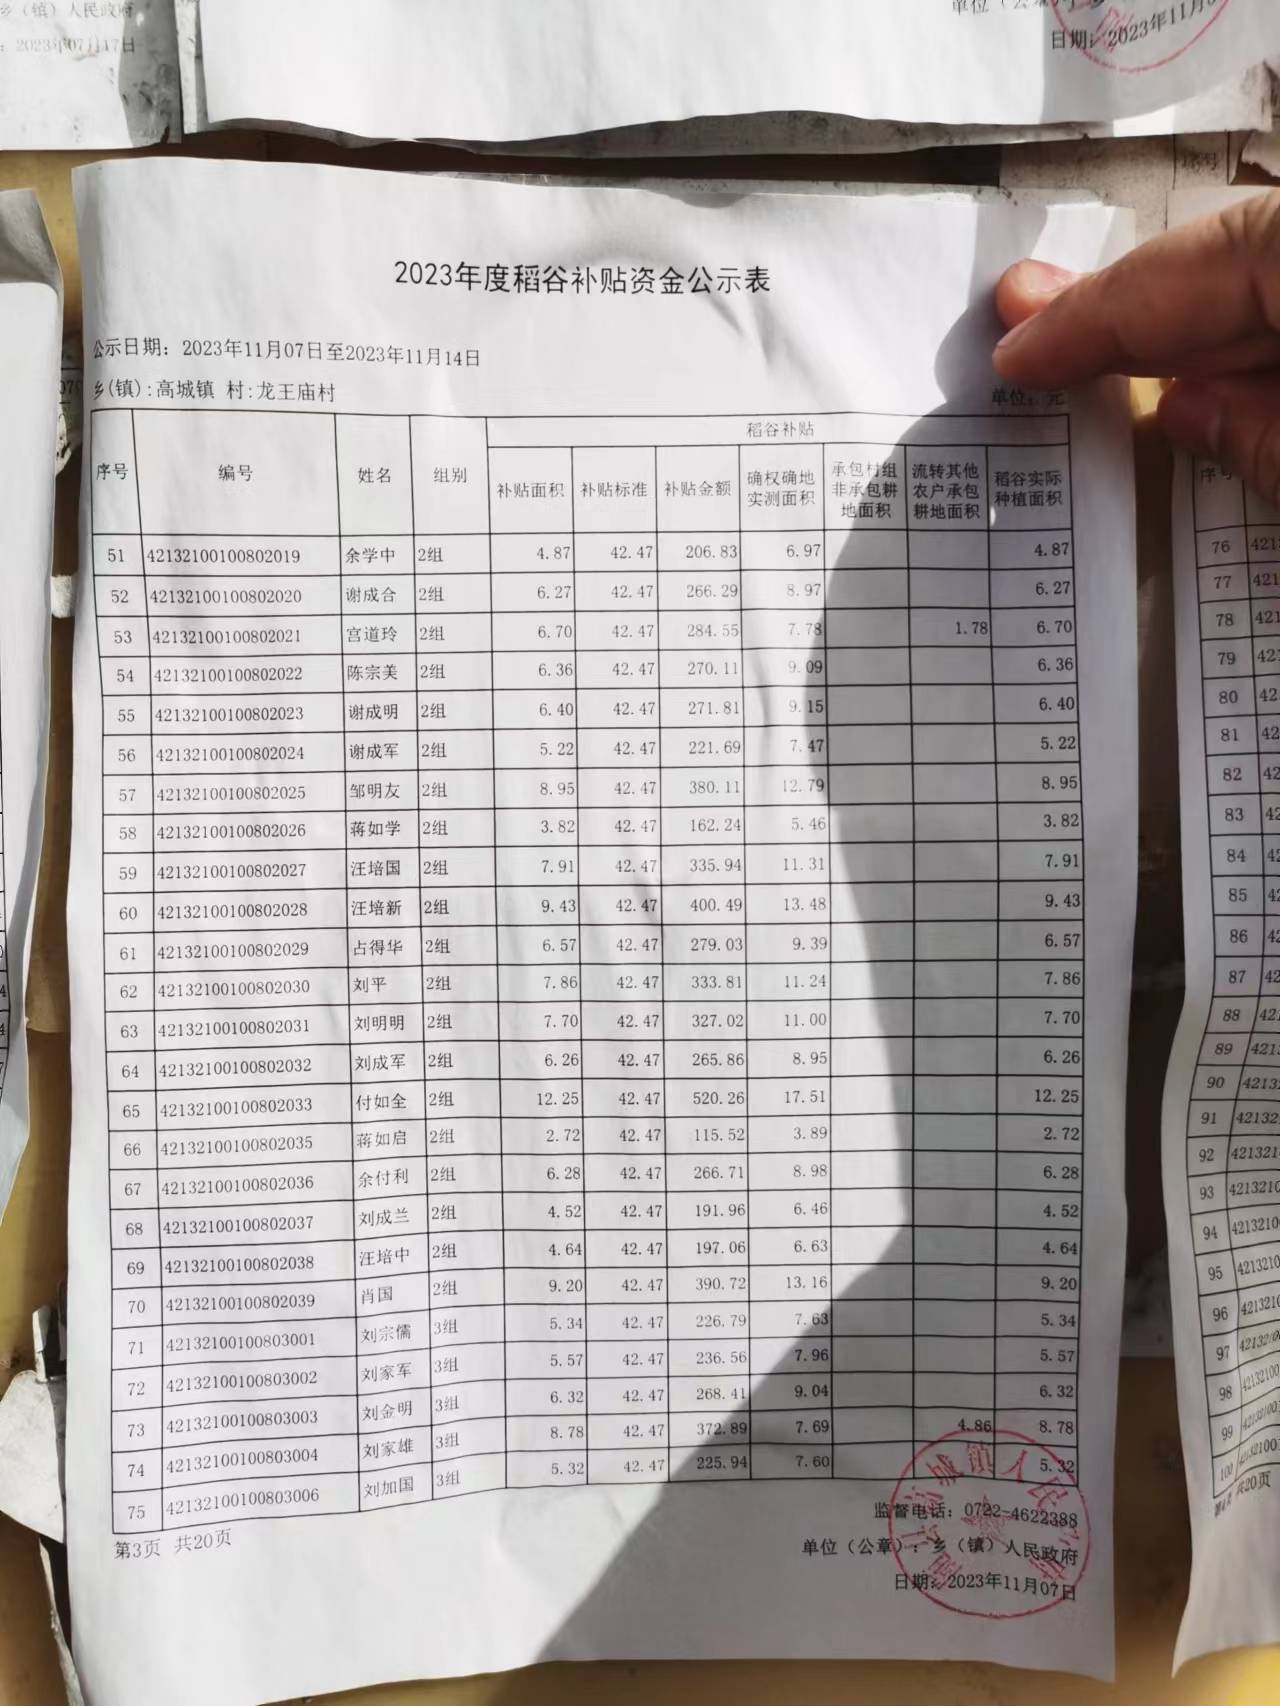 乡（镇）人民政府
：2023年07月17日
日期：2023年11月
序号
2023年度稻谷补贴资金公示表
公示日期：2023年11月07日至2023年11月14日
乡(镇):高城镇 村:龙王庙村
单位：元
稻谷补贴
序号 编号 姓名 组别 补贴面积 补贴标准 补贴金额 确权确地实测面积 承包村组非承包耕地面积 流转其他农户承包耕地面积 稻谷实际种植面积
51 42132100100802019 余学中 2组 4.87 42.47 206.83 6.97 4.87
52 42132100100802020 谢成合 2组 6.27 42.47 266.29 8.97 6.27
53 42132100100802021 宫道玲 2组 6.70 42.47 284.55 7.78 1.78 6.70
54 42132100100802022 陈宗美 2组 6.36 42.47 270.11 9.09 6.36
55 42132100100802023 谢成明 2组 6.40 42.47 271.81 9.15 6.40
56 42132100100802024 谢成军 2组 5.22 42.47 221.69 7.47 5.22
57 42132100100802025 邹明友 2组 8.95 42.47 380.11 12.79 8.95
58 42132100100802026 蒋如学 2组 3.82 42.47 162.24 5.46 3.82
59 42132100100802027 汪培国 2组 7.91 42.47 335.94 11.31 7.91
60 42132100100802028 汪培新 2组 9.43 42.47 400.49 13.48 9.43
61 42132100100802029 占得华 2组 6.57 42.47 279.03 9.39 6.57
62 42132100100802030 刘平 2组 7.86 42.47 333.81 11.24 7.86
63 42132100100802031 刘明明 2组 7.70 42.47 327.02 11.00 7.70
64 42132100100802032 刘成军 2组 6.26 42.47 265.86 8.95 6.26
65 42132100100802033 付如全 2组 12.25 42.47 520.26 17.51 12.25
66 42132100100802035 蒋如启 2组 2.72 42.47 115.52 3.89 2.72
67 42132100100802036 余付利 2组 6.28 42.47 266.71 8.98 6.28
68 42132100100802037 刘成兰 2组 4.52 42.47 191.96 6.46 4.52
69 42132100100802038 汪培中 2组 4.64 42.47 197.06 6.63 4.64
70 42132100100802039 肖国 2组 9.20 42.47 390.72 13.16 9.20
71 42132100100803001 刘宗儒 3组 5.34 42.47 226.79 7.63 5.34
72 42132100100803002 刘家军 3组 5.57 42.47 236.56 7.96 5.57
73 42132100100803003 刘金明 3组 6.32 42.47 268.41 9.04 6.32
74 42132100100803004 刘家雄 3组 8.78 42.47 372.89 7.69 4.86 8.78
75 42132100100803006 刘加国 3组 5.32 42.47 225.94 7.60 5.32
第3页 共20页
监督电话：0722-4622388
单位（公章）：乡（镇）人民政府
日期：2023年11月07日
序号
76
77
78
79
80
81
82
83
84
85
86
87
88
89
90
91
92
93
94
95
96
97
98
99
100
共20页